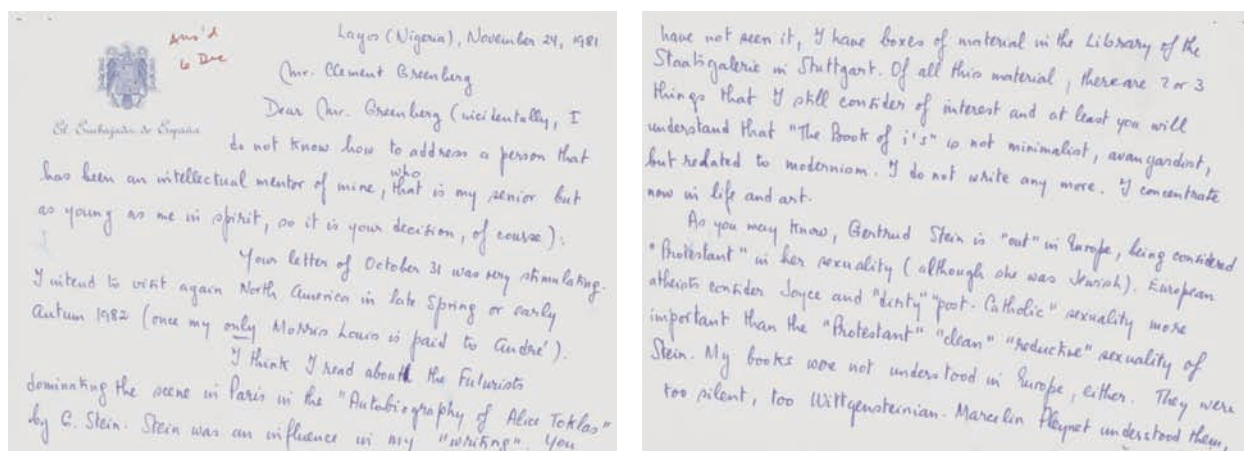 Ans'd
6 Dec
Lagos (Nigeria), November 24, 1981
Mr. Clement Greenberg
El Embajador de España
Dear Mr. Greenberg (incidentally, I
do not know how to address a person that
has been an intellectual mentor of mine, that who is my senior but
as young as me in spirit, so it is your decision, of course):
Your letter of October 31 was very stimulating.
I intend to visit again North America in late Spring or early
Autum 1982 (once my only Morris Louis is paid to André).
I think I read about the Futurists
dominating the scene in Paris in the "Autobiography of Alice Toklas"
by G. Stein. Stein was an influence in my "writing". You
have not seen it, I have boxes of material in the Library of the
Staatsgalerie in Stuttgart. Of all this material, there are 2 or 3
things that I still consider of interest and at least you will
understand that "The Book of i's" is not minimalist, avangardist,
but related to modernism. I do not write any more. I concentrate
now in life and art.
As you may know, Gertrud Stein is "out" in Europe, being considered
"Protestant" in her sexuality (although she was Jewish). European
atheists consider Joyce and "dirty" "post-Catholic" sexuality more
important than the "Protestant" "clean" "reductive" sexuality of
Stein. My books were not understood in Europe, either. They were
too silent, too Wittgensteinian. Marcelin Pleynet understood them,